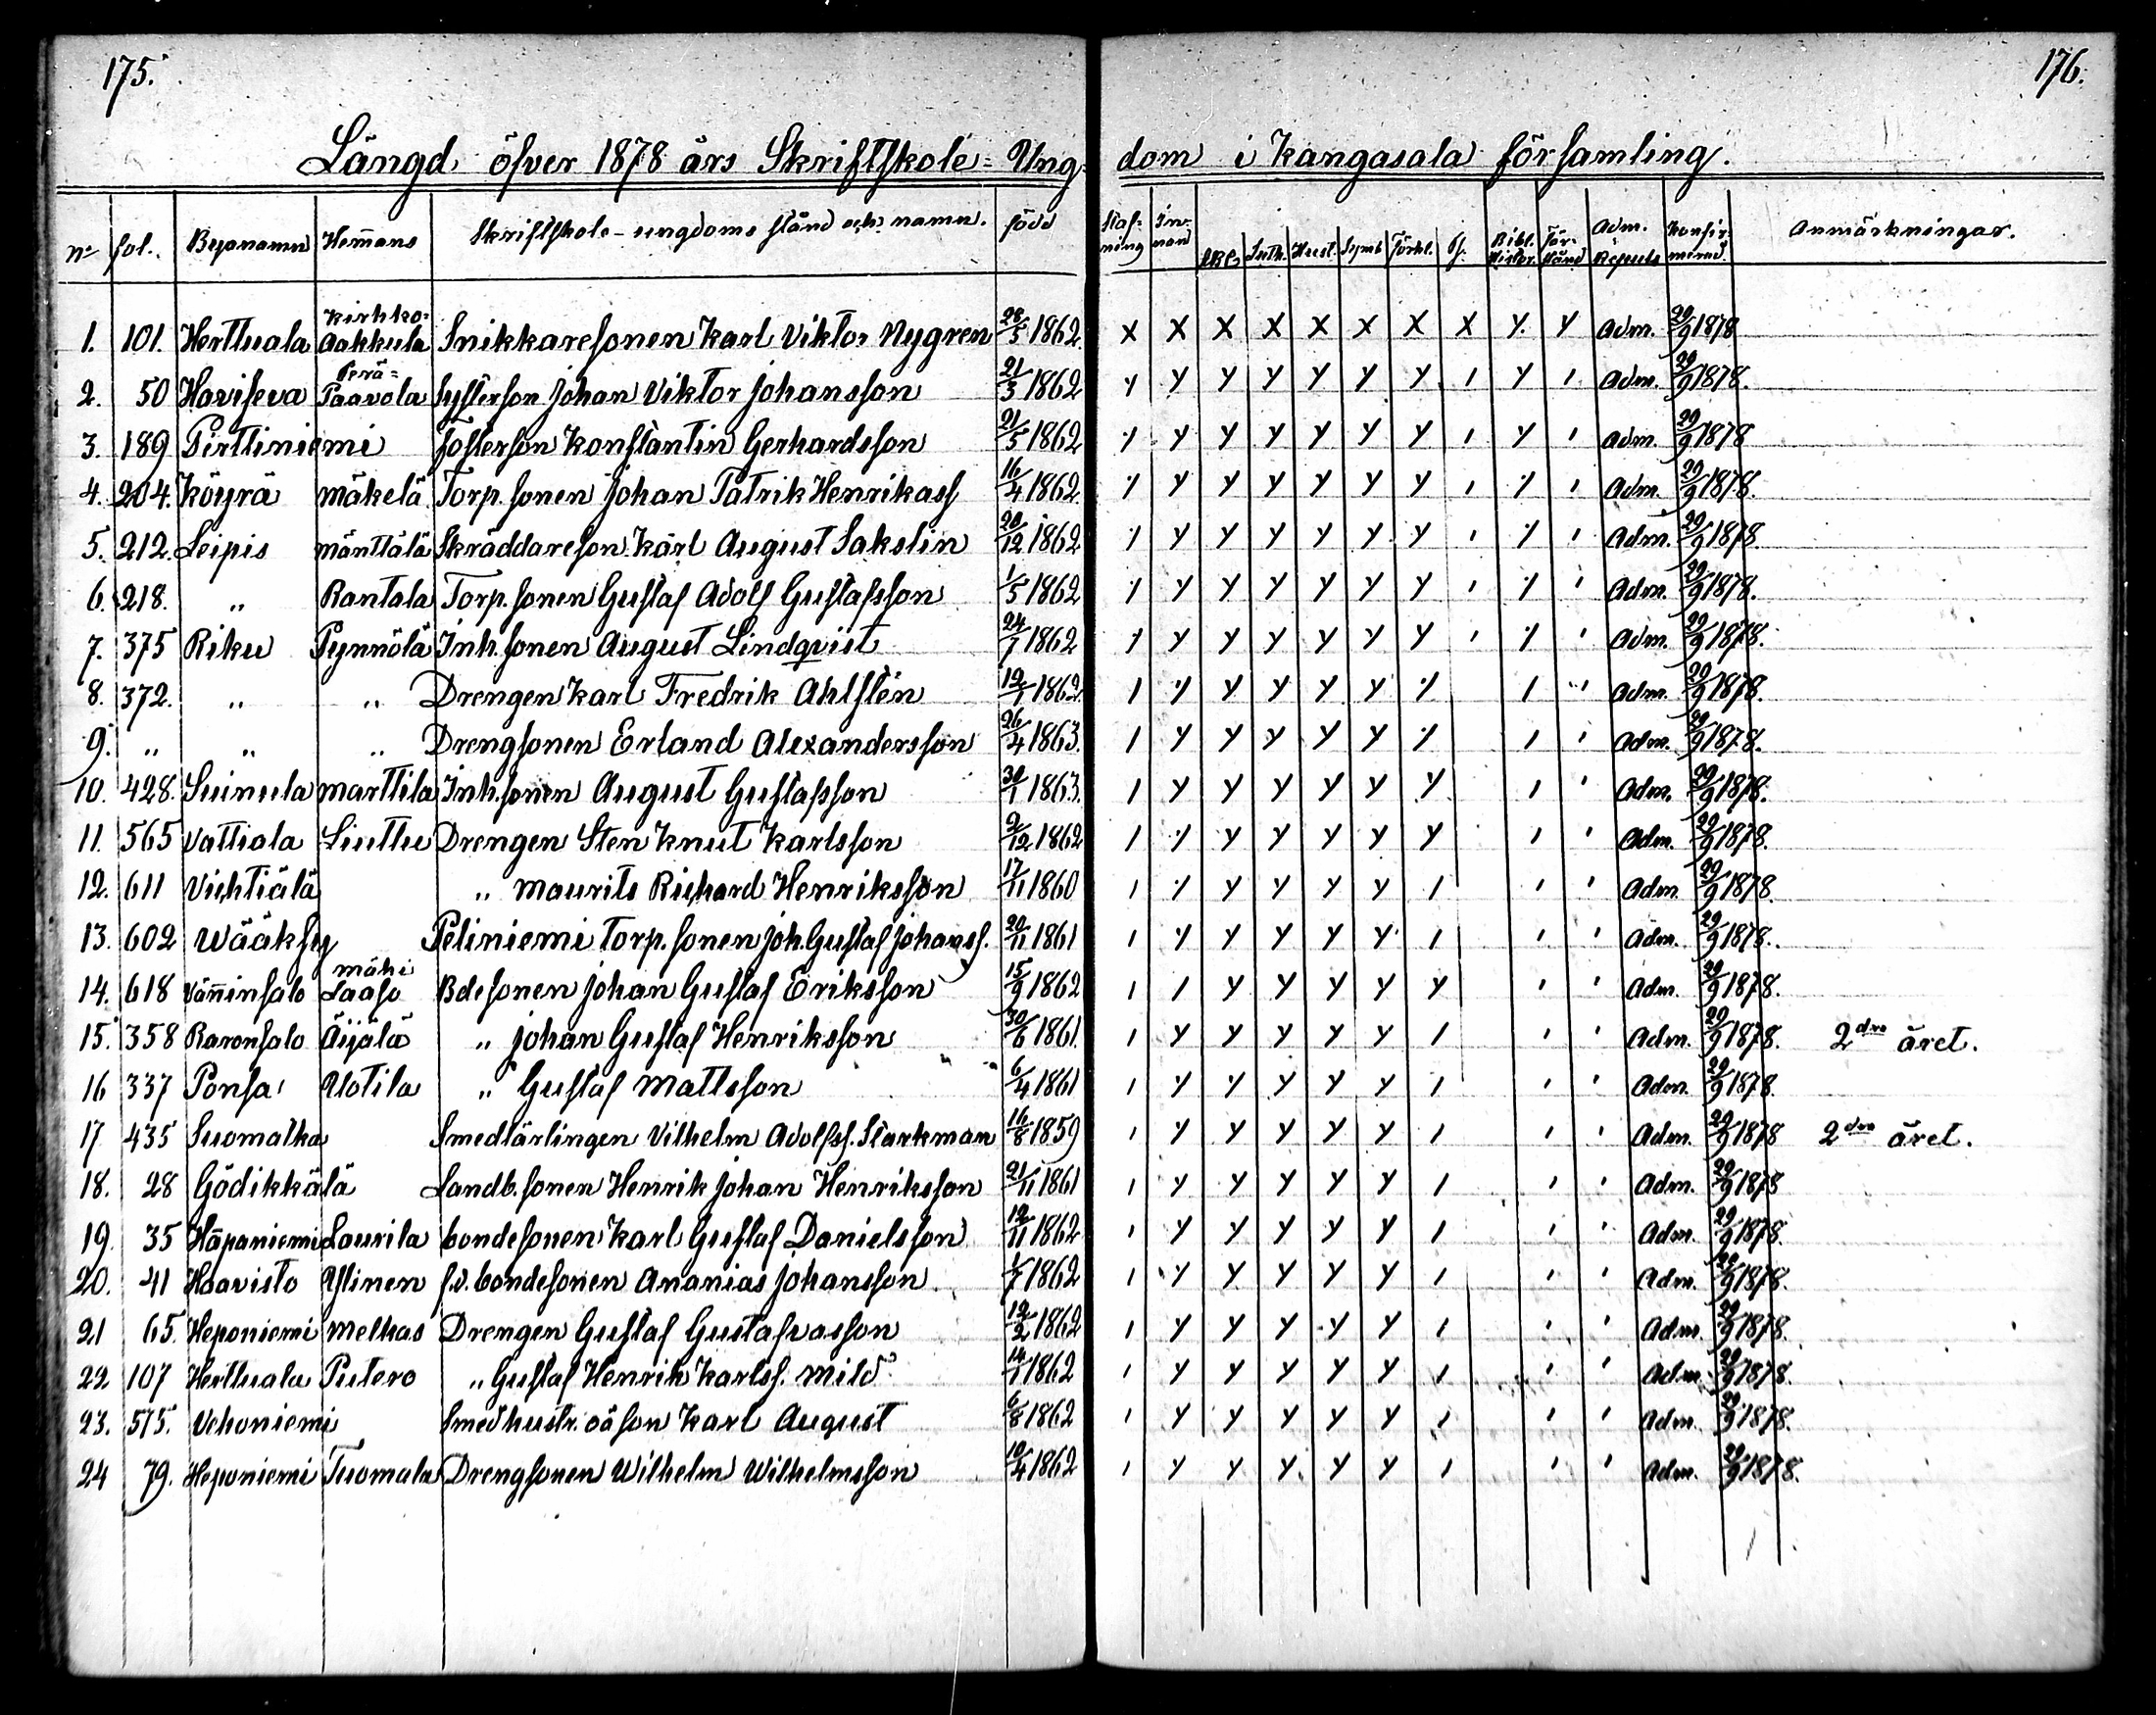 175. 176.
Längd öfver 1878 års Skriftskole-Ungdom i Kangasala församling.
No fol. Byanamn Hem̄ans Skriftskole-ungdoms stånd och namn. född Staf-ning In-nan ABC Luth. Hust. Symb Förkl. Ps. Bibl. Histor. För-stånd Adm. Konfir-merad. Anmärkningar.
1. 101. Herttuala Kirkko-Aakkula Snikkaresonen Karl Viktor Nygren 28/5 1862. X X X X X X X X Y. Y Adm. 29/9 1878
2. 50 Haviseva Perä-Paavola Systerson Johan Viktor Johansson 21/3 1862 Y Y Y Y Y Y Y 1 Y 1 Adm. 29/9 1878.
3. 189 Pirttiniemi Fosterson Konstantin Gerhardsson 21/5 1862 Y Y Y Y Y Y Y 1 Y 1 Adm. 29/9 1878
4. 204. Köyrä Mäkelä Torp. sonen Johan Patrik Henrikass 16/4 1862 Y Y Y Y Y Y Y 1 Y 1 Adm. 29/9 1878.
5. 212. Leipis Mänttälä Skräddareson Karl August Sakslin 20/12 1862 Y Y Y Y Y Y Y 1 Y 1 Adm. 29/9 1878.
6. 218. " Rantala Torp. sonen Gustaf Adolf Gustafsson 1/5 1862 Y Y Y Y Y Y Y 1 Y 1 Adm. 29/9 1878.
7. 375 Riku Pynnölä Inh. sonen August Lindqvist 24/7 1862 Y Y Y Y Y Y Y 1 Y 1 Adm. 29/9 1878.
8. 372. " " Drengen Karl Fredrik Ahlstén 12/7 1862 1 Y Y Y Y Y Y 1 1 Adm. 29/9 1878.
9. " " " Drengsonen Erland Alexandersson 26/4 1863. 1 Y Y Y Y Y Y 1 1 Adm. 29/9 1878.
10. 428. Suinula Marttila Inh. sonen August Gustafsson 30/1 1863. 1 Y Y Y Y Y Y 1 1 Adm. 29/9 1878.
11. 565 Vattiala Liuttu Drengen Sten Knut Karlsson 2/12 1862 1 Y Y Y Y Y Y 1 1 Adm. 29/9 1878.
12. 611 Vichtiälä " Maurits Richard Henriksson 17/11 1860 1 Y Y Y Y Y 1 1 1 Adm. 29/9 1878.
13. 602 Wääksy Peliniemi Torp. sonen Joh. Gustaf Johanss. 20/11 1861 1 Y Y Y Y Y 1 1 1 Adm. 29/9 1878.
14. 618 Vän̄insalo Mäki Laaso Bdesonen Johan Gustaf Eriksson 15/9 1862 1 1 Y Y Y Y Y 1 1 Adm. 29/9 1878.
15. 358 Raronsalo Äijälä " Johan Gustaf Henriksson 30/6 1861. 1 Y Y Y Y Y 1 1 1 Adm. 29/9 1878. 2dra året.
16 337 Ponsa Uotila " Gustaf Mattsson 6/4 1861 1 Y Y Y Y Y 1 1 1 Adm. 29/9 1878.
17 435 Suomatka Smedlärlingen Vilhelm Adolfss. Starkman 16/8 1859 1 Y Y Y Y Y 1 1 1 Adm. 29/9 1878 2dra året.
18. 28 Gödikkälä Landb. sonen Henrik Johan Henriksson 21/11 1861 1 Y Y Y Y Y 1 1 1 Adm. 29/9 1878
19. 35 Hapaniemi Laurila bondesonen Karl Gustaf Danielsson 12/11 1862 1 Y Y Y Y Y 1 1 1 Adm. 29/9 1878.
20. 41 Haavisto Ylinen f.d. bondesonen Ananias Johansson 1/7 1862 1 Y Y Y Y Y 1 1 1 Adm. 29/9 1878.
21 65. Heponiemi Melkas Drengen Gustaf Gustafvasson 12/2 1862 1 Y Y Y Y Y 1 1 1 Adm. 29/9 1878.
22 107 Herttuala Putero " Gustaf Henrik Karlss. Mild 14/1 1862 1 Y Y Y Y Y 1 1 1 Adm. 29/9 1878.
23. 575. Vehoniemi Smedhustr. oä son Karl August 6/8 1862 1 Y Y Y Y Y 1 1 1 Adm. 29/9 1878.
24 79. Heponiemi Tuomala Drengsonen Wilhelm Wilhelmsson 10/4 1862 1 Y Y Y Y Y 1 1 1 Adm. 29/9 1878.